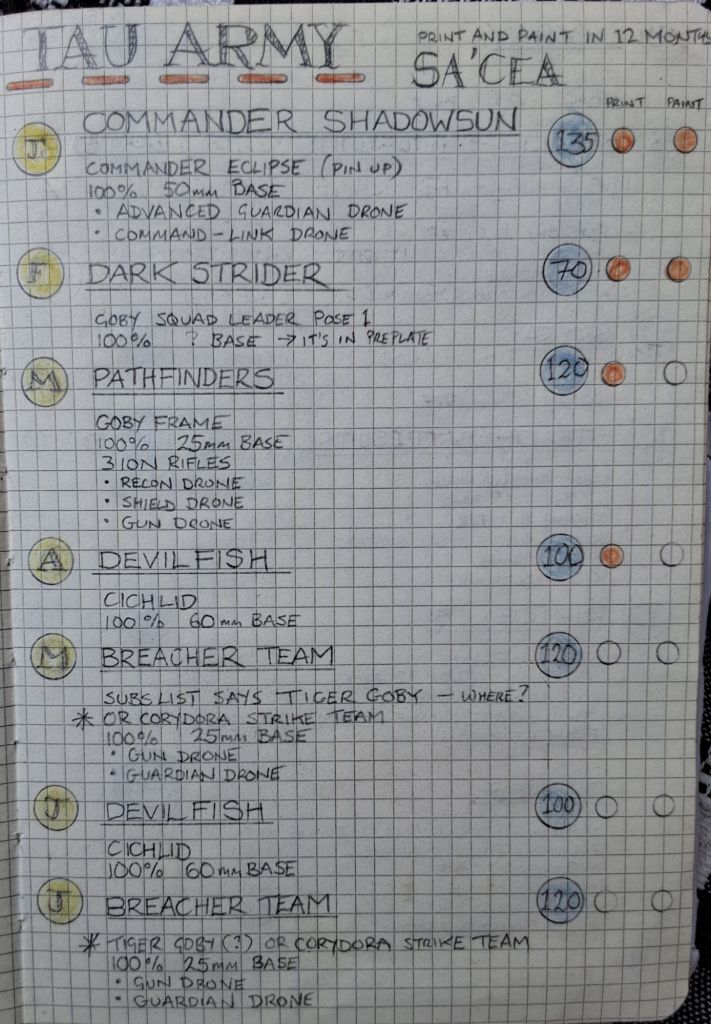 TAU ARMY
PRINT AND PAINT IN 12 MONTHS
SA'CEA
PRINT PAINT
J COMMANDER SHADOWSUN 135
COMMANDER ECLIPSE (PIN UP)
100% 50mm BASE
• ADVANCED GUARDIAN DRONE
• COMMAND-LINK DRONE
F DARK STRIDER 70
GOBY SQUAD LEADER POSE 1
100% ? BASE → IT'S IN PREPLATE
M PATHFINDERS 120
GOBY FRAME
100% 25mm BASE
3 ION RIFLES
• RECON DRONE
• SHIELD DRONE
• GUN DRONE
A DEVILFISH 100
CICHLID
100% 60mm BASE
M BREACHER TEAM 120
SUBS LIST SAYS TIGER GOBY - WHERE?
* OR CORYDORA STRIKE TEAM
100% 25mm BASE
• GUN DRONE
• GUARDIAN DRONE
J DEVILFISH 100
CICHLID
100% 60mm BASE
J BREACHER TEAM 120
* TIGER GOBY (?) OR CORYDORA STRIKE TEAM
100% 25mm BASE
• GUN DRONE
• GUARDIAN DRONE